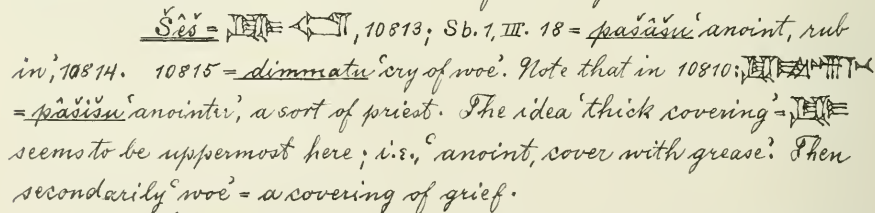 Šêš = , 10813; Sb. 1, III. 18 = pašâšu 'anoint, rub
in', 10814. 10815 = dimmatu 'cry of woe'. Note that in 10810:
= pâšišu 'anointer', a sort of priest. The idea 'thick covering' =
seems to be uppermost here; i.e., 'anoint, cover with grease'. Then
secondarily 'woe' = a covering of grief.